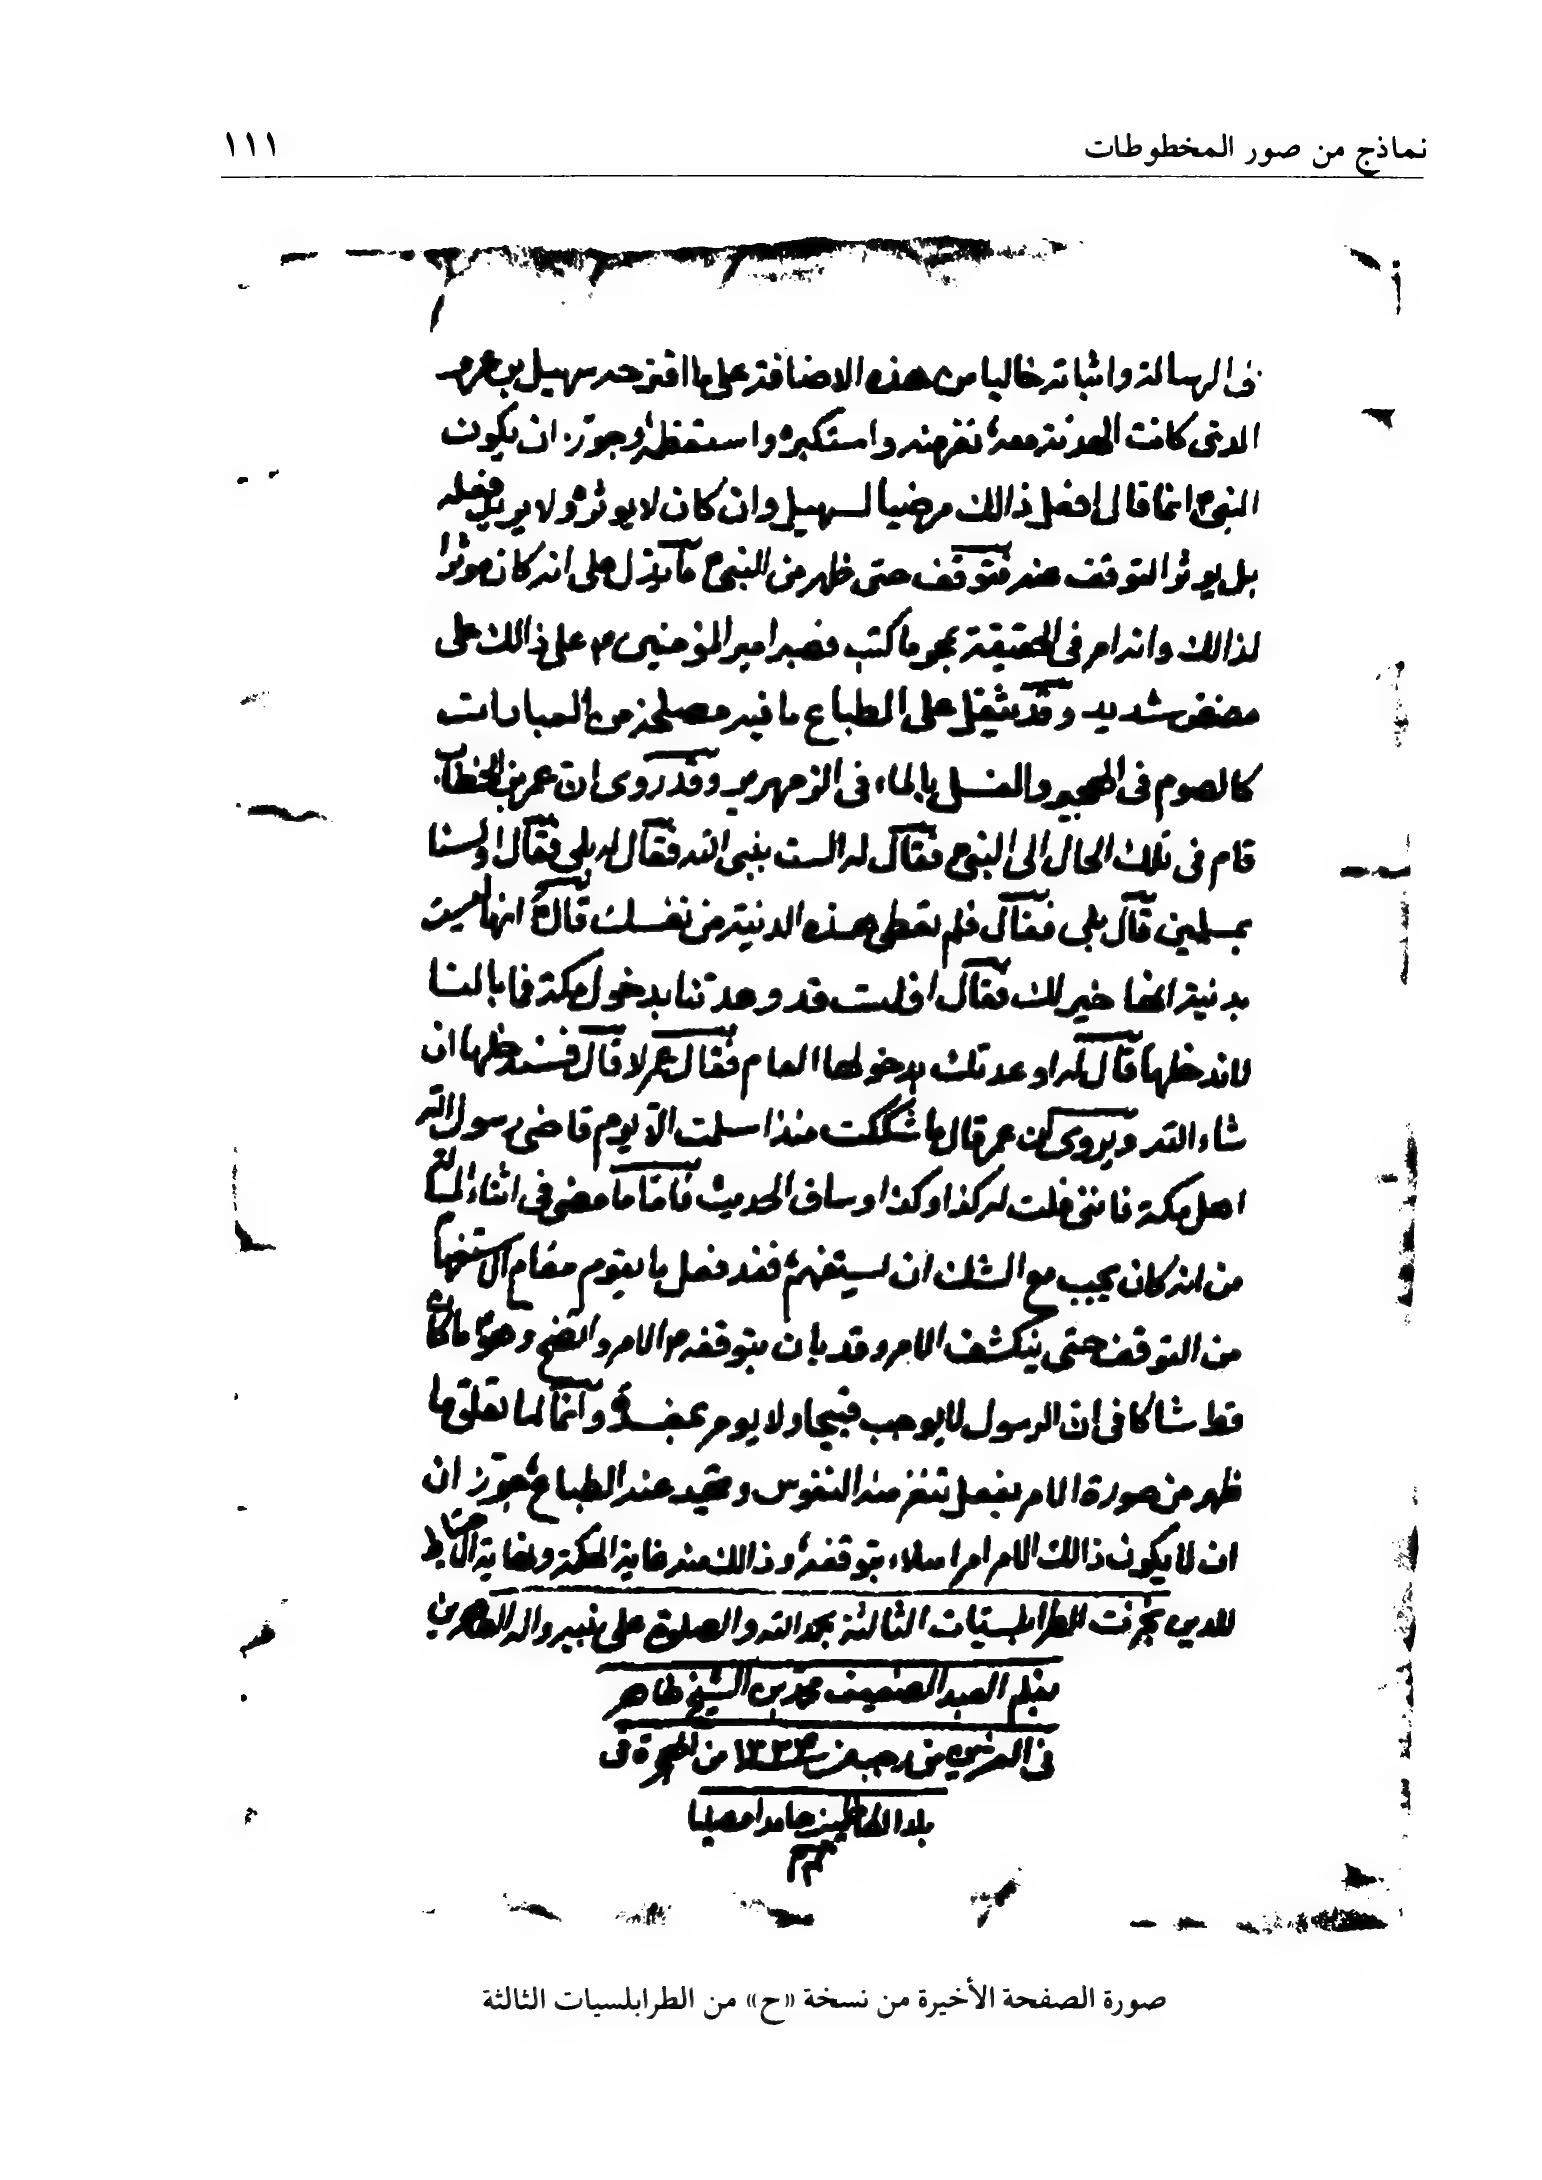 نماذج من صور المخطوطات ١١١
فى الرسالة واثباته خاليا من هذه الاضافة على ما اقترحه سهيل بن عمرو
الذى كانت الهدنة معه نفر منه واستكبره واستفظعه وجوّز ان يكون
النبى انما قال افعل ذالك مرضيا لسهيل وان كان لا يوثره ولا يريد فعله
بل يوثر التوقف عنه فتوقف حتى ظهر من النبى ما يدل على انه كان موثرا
لذالك وانه امر فى الحقيقة بمحو ما كتب فصبر امير المؤمنين ع على ذالك على
مضض شديد وقد يثقل على الطباع ما فيه مصلحة من العبادات
كالصوم فى الهجير والغسل بالماء فى الزمهرير وقد روى ان عمر بن الخطاب
قام فى تلك الحال الى النبى فقال له الست بنبى الله فقال له بلى فقال اولسنا
بمسلمين قال بلى فقال فلم تعطى هذه الدنية من نفسك قال انها ليست
بدنية انها خير لك فقال افليست قد وعدتنا بدخول مكة فما بالنا
لا ندخلها قال له او عدتك بدخولها العام فقال عمر لا قال فسندخلها ان
شاء الله ويروى ان عمر قال ما شككت منذ اسلمت الّا يوم قاضى رسول الله
اهل مكة فاننى قلت له كذا وكذا وساق الحديث فامّا ما مضى فى اثناء
من انه كان يجب مع الشك ان يستفهمه فقد فعل ما يقوم مقام الاستفهام
من التوقف حتى ينكشف الامر وقد بان بتوقفه الامر واتضح وهو ما كان
قط شاكا فى ان الرسول لا يوجب قبيحا ولا يومر بمفسدة وانما لما تعلق ما
ظهر من صورة الامر بفعل تنفر منه النفوس وتحيد عنه الطباع جوّز ان
ان لا يكون ذالك الامر امرا بتوقفه وذالك منه غاية الحكمة ونهاية الاحتياط
للدين نجزت الطرابلسيات الثالثة بحمد الله والصلوة على نبيه واله الطاهرين
بقلم العبد الضعيف محمد بن الشيخ طاهر
فى العشرين من رجب من سنة ١٣٣٣ من الهجرة فى
بلد الكاظمين حامدا مصليا
صورة الصفحة الأخيرة من نسخة «ح» من الطرابلسيات الثالثة